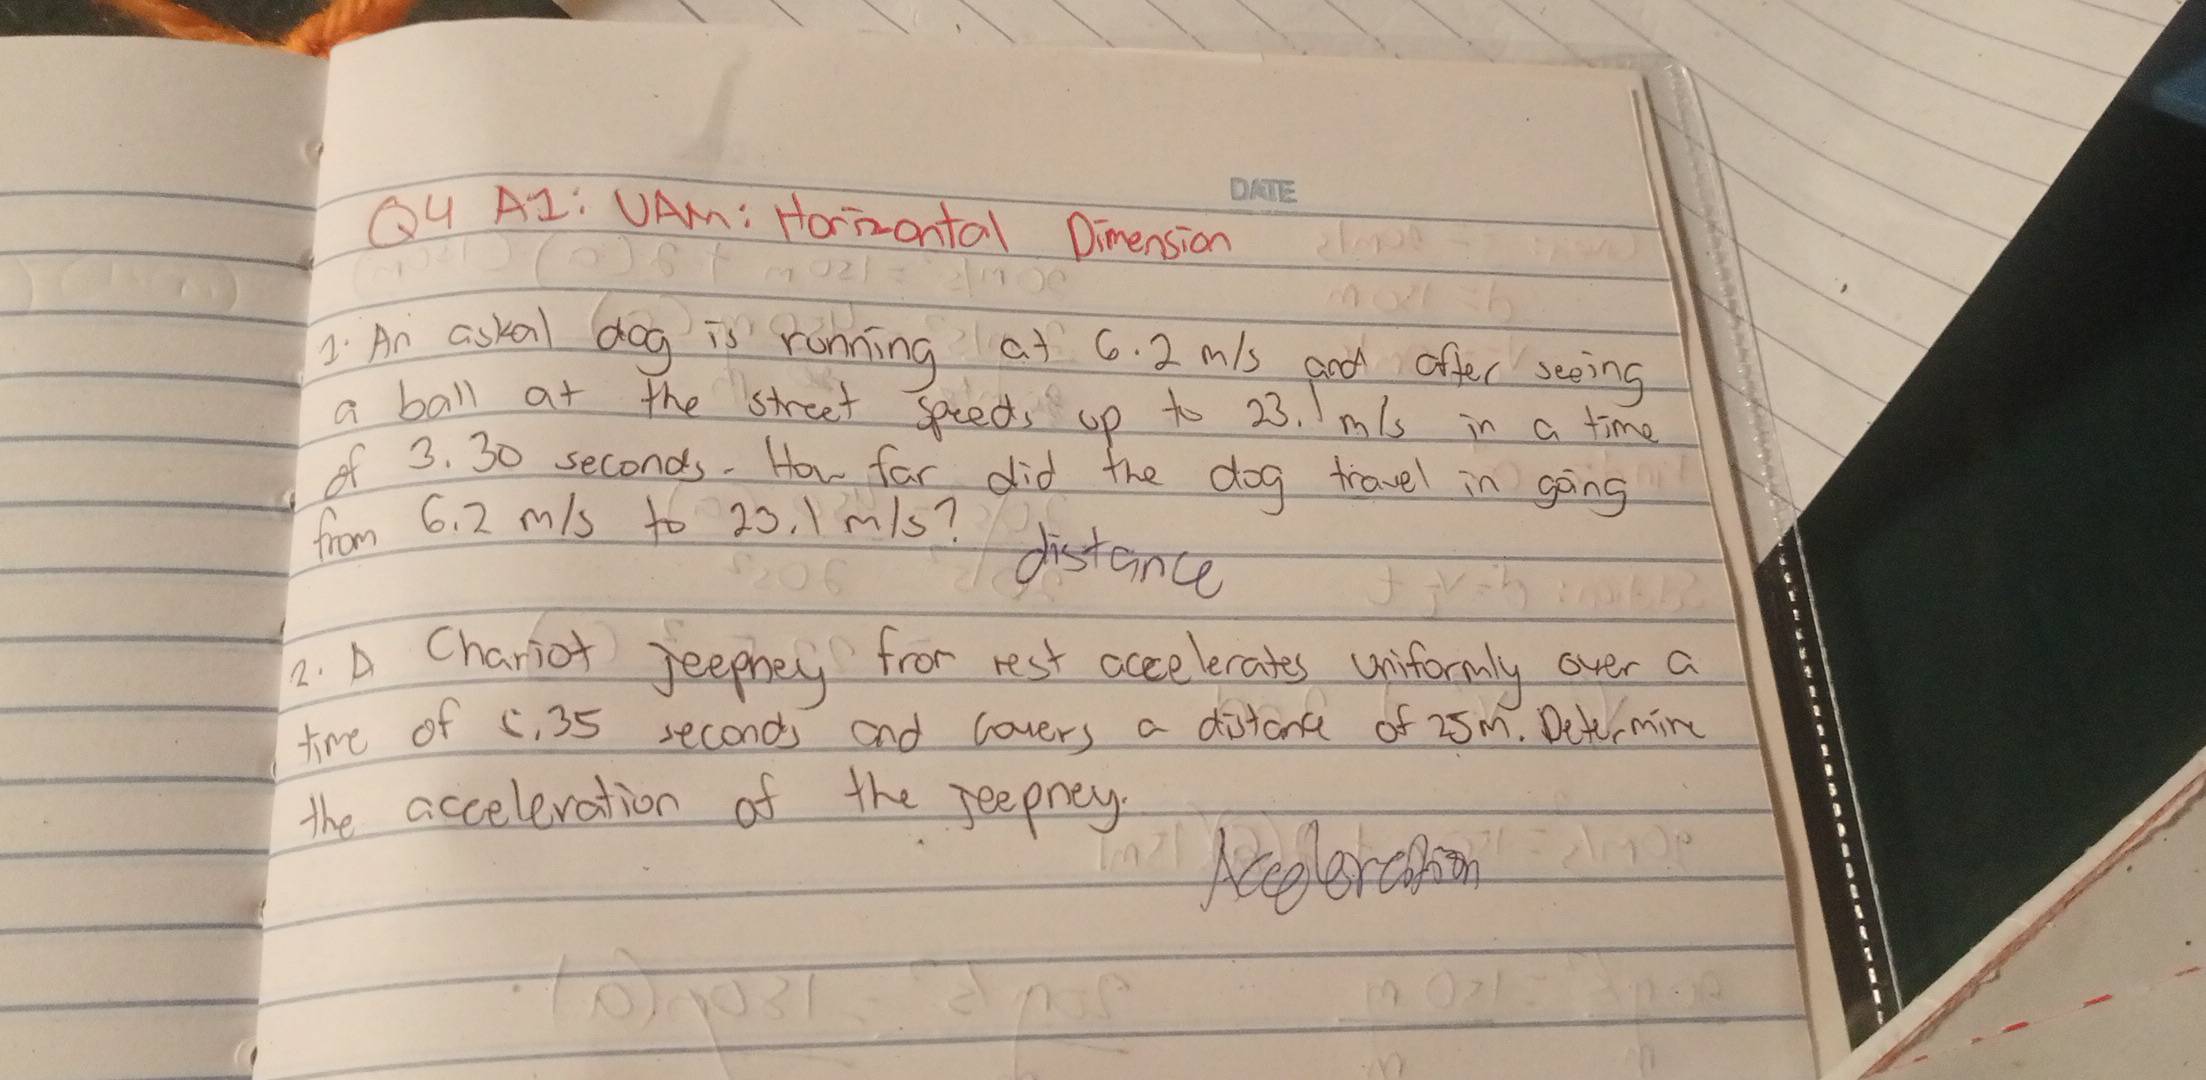 DATE
Q4 A1: UAM: Horizontal Dimension
1. An askal dog is running at 6.2 m/s and after seeing
a ball at the street speeds up to 23.1 m/s in a time
of 3.30 seconds. How far did the dog travel in going
from 6.2 m/s to 23.1 m/s?
distance
2. A Chariot jeepney from rest accelerates uniformly over a
time of .35 seconds and covers a distance of 25m. Determine
the acceleration of the jeepney.
Acceleration